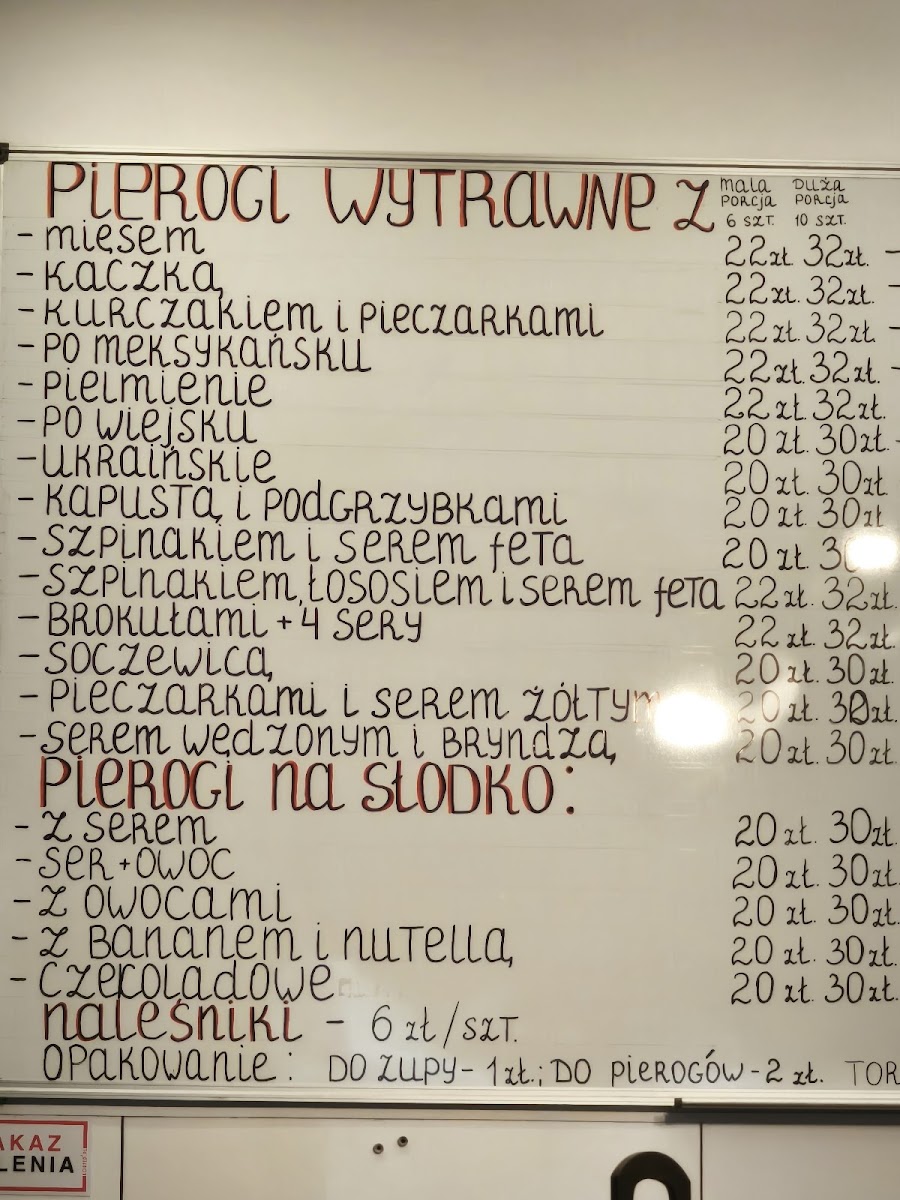 PIEROGI WYTRAWNE Z MAŁA PORCJA 6 SZT. DUŻA PORCJA 10 SZT.
- MIĘSEM 22zł. 32zł. -
- KACZKĄ 22zł. 32zł. -
- KURCZAKIEM I PIECZARKAMI 22zł. 32zł. -
- PO MEKSYKAŃSKU 22zł. 32zł. -
- PIELMIENIE 22zł. 32zł.
- PO WIEJSKU 20 zł. 30zł. -
- UKRAIŃSKIE 20 zł. 30zł.
- KAPUSTĄ I PODGRZYBKAMI 20 zł. 30zł
- SZPINAKIEM I SEREM FETA 20 zł.
- SZPINAKIEM, ŁOSOSIEM I SEREM FETA 22zł. 32zł.
- BROKUŁAMI + 4 SERY 22 zł. 32zł.
- SOCZEWICĄ 20 zł. 30zł.
- PIECZARKAMI I SEREM ŻÓŁTYM 20 zł. 30zł.
- SEREM WĘDZONYM I BRYNDZĄ 20zł. 30zł.
PIEROGI NA SŁODKO:
- Z SEREM 20 zł. 30zł.
- SER + OWOC 20 zł. 30zł.
- Z OWOCAMI 20 zł. 30zł.
- Z BANANEM I NUTELLĄ 20 zł. 30zł.
- CZEKOLADOWE 20 zł. 30zł.
NALEŚNIKI - 6 zł/SZT.
OPAKOWANIE: DO ZUPY - 1zł.; DO PIEROGÓW - 2 zł. TOR
AKAZ
LENIA